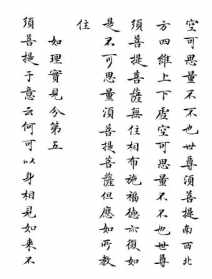 空可思量不不也世尊須菩提南西北
方四維上下虛空可思量不不也世尊
須菩提菩薩無住相布施福德亦復如
是不可思量須菩提菩薩但應如所教
住
如理實見分第五
須菩提于意云何可以身相見如來不